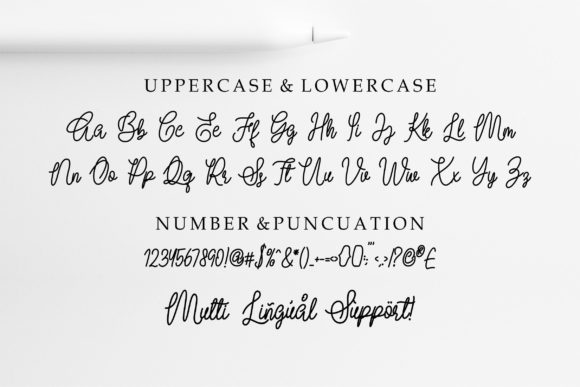 UPPERCASE & LOWERCASE
Aa Bb Cc Ee Ff Gg Hh Ii Jj Kk Ll Mm
Nn Oo Pp Qq Rr Ss Tt Uu Vv Ww Xx Yy Zz
NUMBER &PUNCUATION
1234567890!@#$%^&*()_+-=<>{}:;"'<,.>/?©®£
Multi Liñgúål Sùppört!